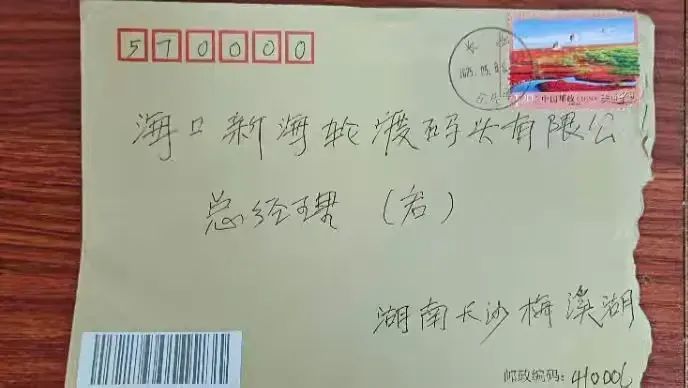 570000
中国邮政 CHINA
海口新海轮渡码头有限公
总经理 (启)
湖南长沙梅溪湖
邮政编码: 410006